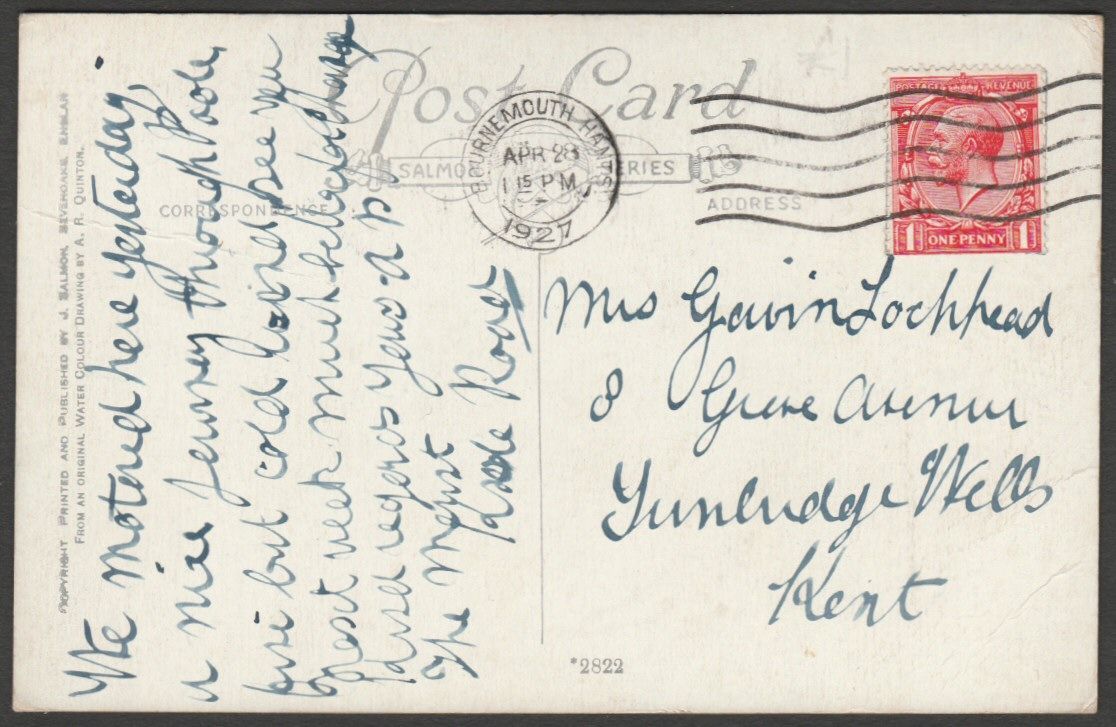 Post Card
SALMON SERIES
CORRESPONDENCE
ADDRESS
BOURNEMOUTH HANTS
APR 28
1 15 PM
1927
POSTAGE REVENUE
1 ONE PENNY 1
£1
Mrs Gavin Lochhead
8 Grove Avenue
Tunbridge Wells
Kent
We motored here yesterday,
a nice journey through Poole,
fine but cold hoped see you
next week must be back
kind regards yours
The
Road
COPYRIGHT PRINTED AND PUBLISHED BY J. SALMON, SEVENOAKS, ENGLAND
FROM AN ORIGINAL WATER COLOUR DRAWING BY A. R. QUINTON.
*2822